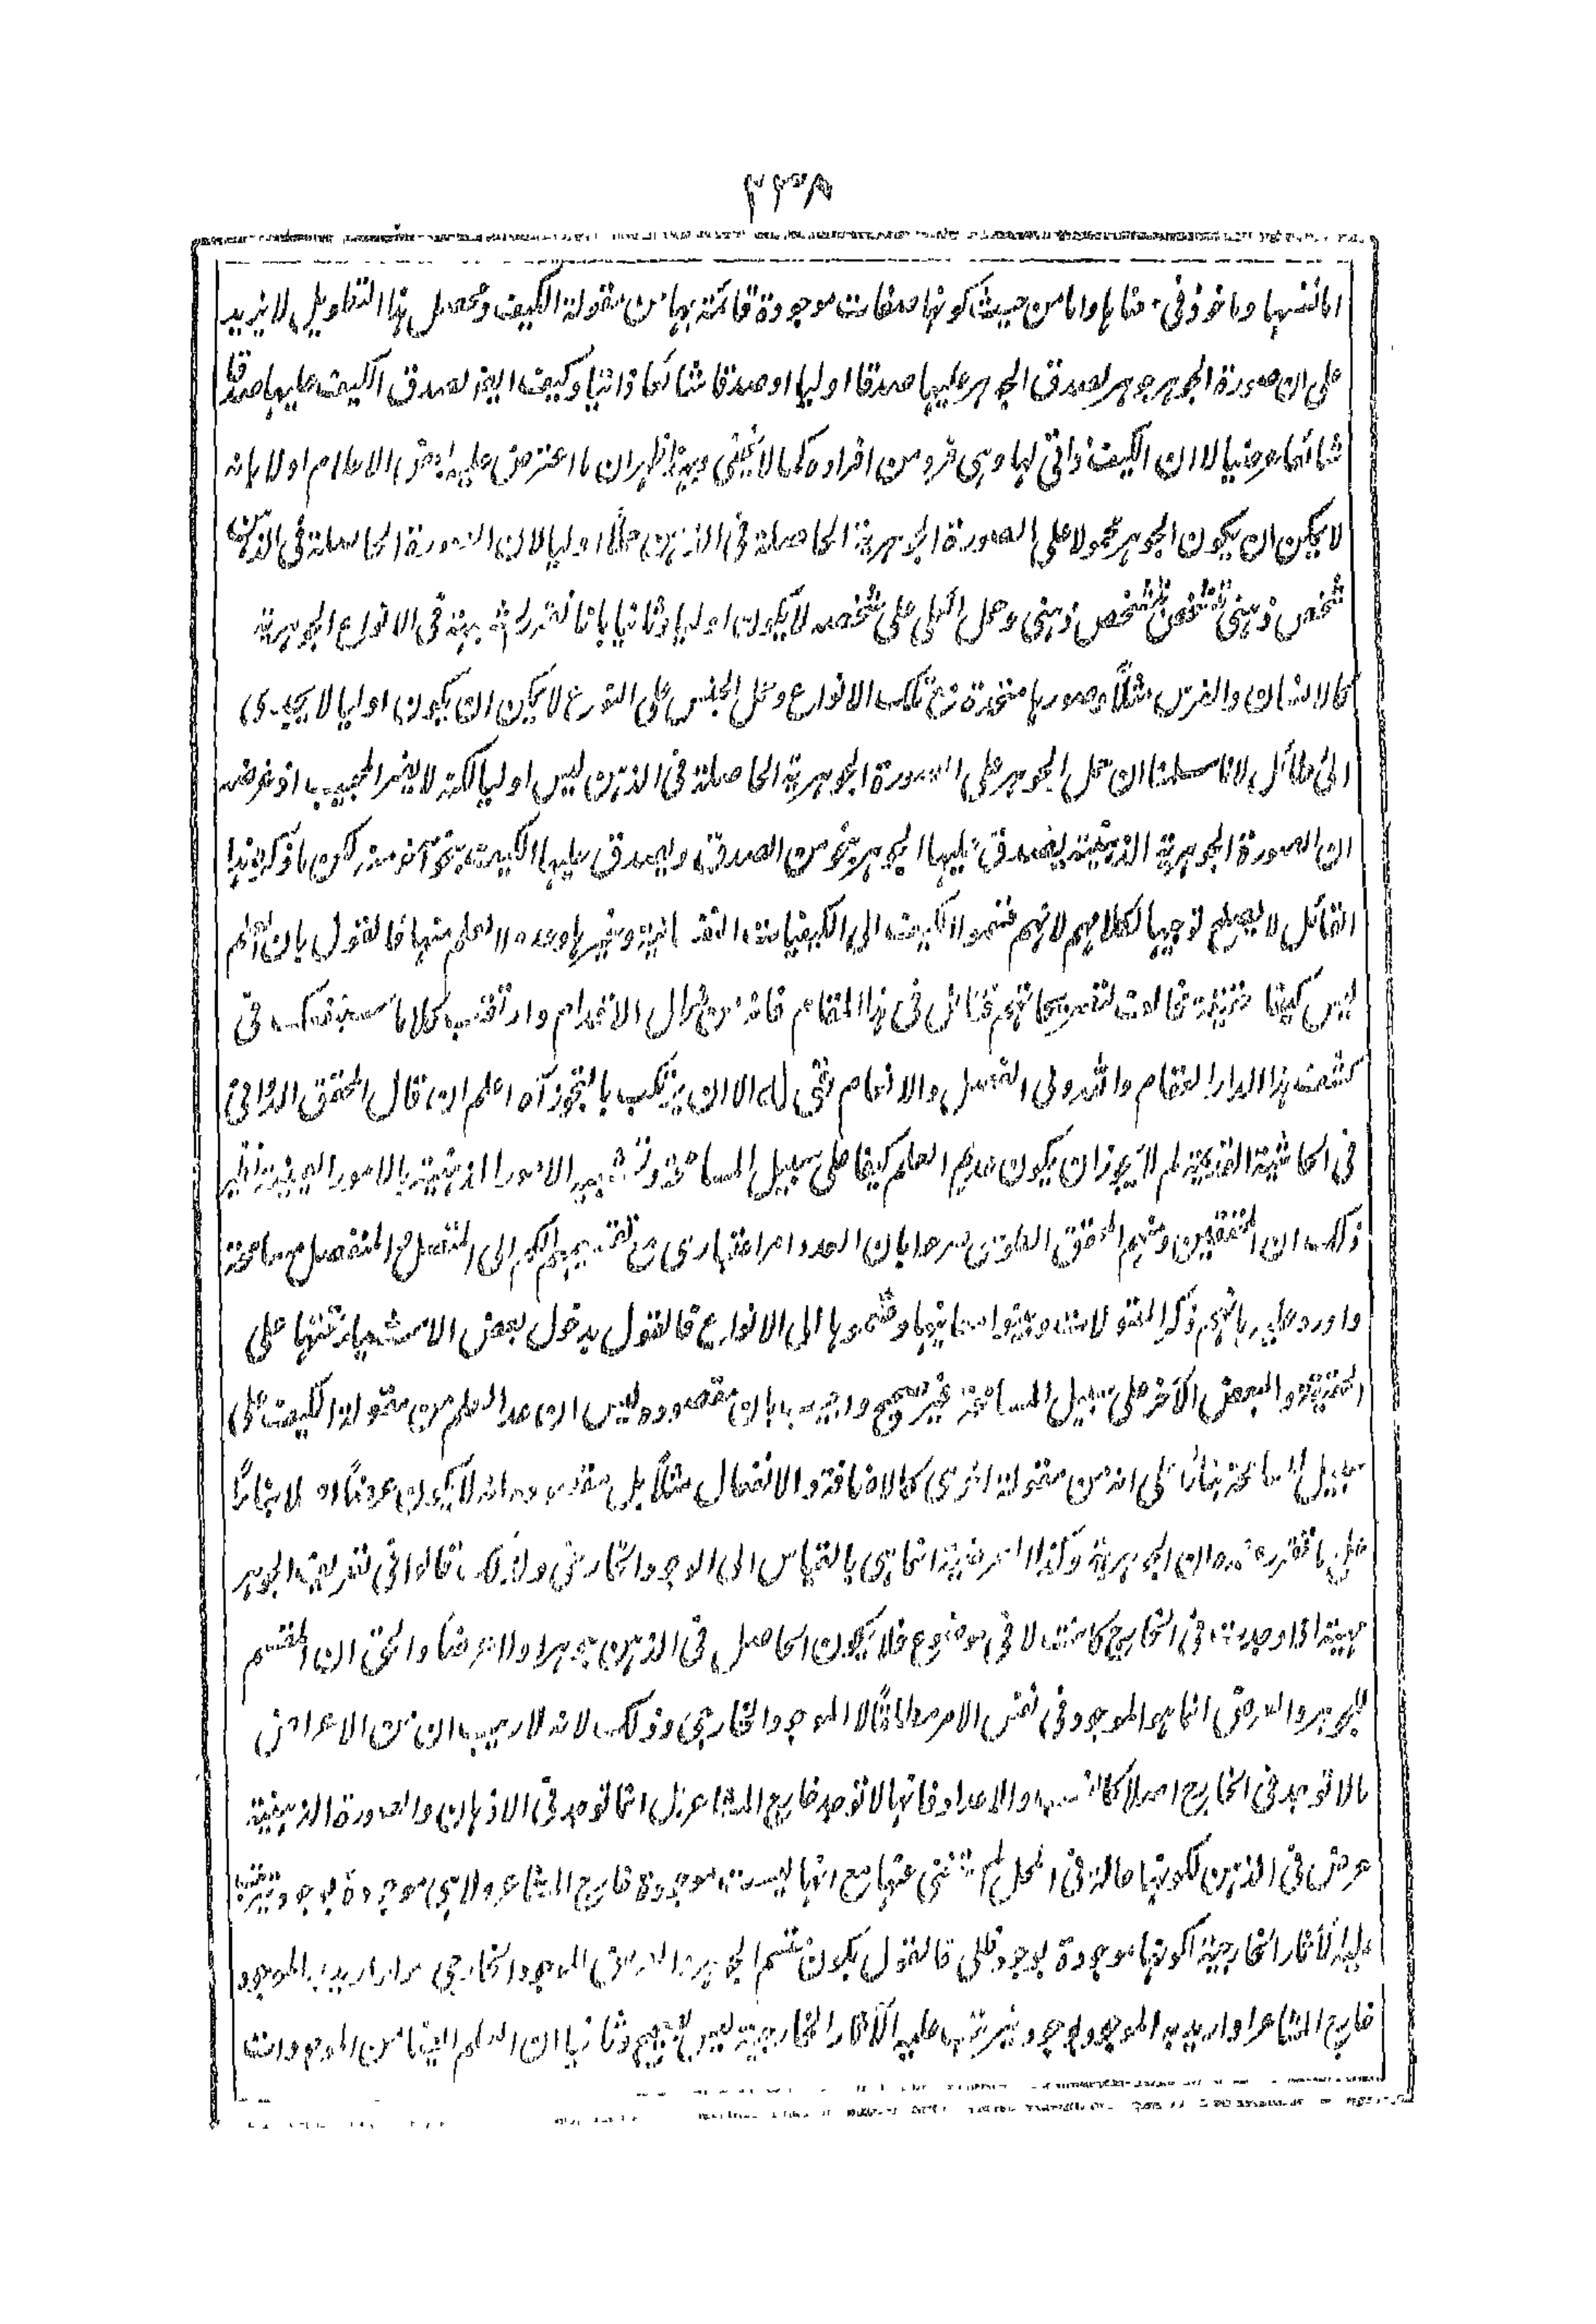 ٣٣٨
اما نفسها وماخوذ فى معناها واما من حيث كونها صفات موجودة قائمة بها من مقولة الكيف ومحصل هذا التطويل لا يزيد
على ان صورة الجوهر جوهر لصدق الجوهر عليها صدقا اوليا او صدقا شائعا ذاتيا وكيف ايضا لصدق الكيف عليها صدقا
شائعا عرضيا لا ان الكيف ذاتى لها وهى فرد من افراده كما لا يخفى وبهذا ظهر ان ما اعترض عليه بعض الاعلام اولا بانه
لا يمكن ان يكون الجوهر محمولا على الصورة الجوهرية الحاصلة فى الذهن حملا اوليا لان الصورة الحاصلة فى الذهن
شخص ذهنى متشخص بتشخص ذهنى وحمل الكلى على شخصه لا يكون اوليا وثانيا بانا نفرض الشبهة فى الانواع الجوهرية
كالانسان والفرس مثلا وصورها متحدة مع تلك الانواع وحمل الجنس على النوع لا يمكن ان يكون اوليا لا يجدى
الى طائل لانا سلمنا ان حمل الجوهر على الصورة الجوهرية الحاصلة فى الذهن ليس اوليا لكنه لا يضر المجيب اذ غرضه
ان الصورة الجوهرية الذهنية يصدق عليها الجوهر بنحو من الصدق ويصدق عليها الكيف بنحو آخر منه لكن ما ذكره هذا
القائل لا يصلح توجيها لكلامهم لانهم قسموا الكيف الى الكيفيات النفسانية وغيرها وعدوا العلم منها فالقول بان العلم
ليس كيفا حقيقة مخالف لتصريحاتهم فتامل فى هذا المقام فانه من مزال الاقدام وارتقب كلاما سينفعك فى
كشف هذا الداء العقام والله ولى الفضل والانعام قوله الا ان يرتكب بالتجوز آه اعلم انه قال المحقق الدوانى
فى الحاشية القديمة لم لا يجوز ان يكون عدهم العلم كيفا على سبيل المسامحة وتشبيه الامور الذهنية بالامور العينية نظير
ذلك ان المحققين ومنهم المحقق الطوسى صرحوا بان العدد امر اعتبارى مع تقسيمهم الكم الى المتصل والمنفصل مسامحة
واورد عليه بانهم ذكروا المقولات وبينوا معانيها وقسموها الى الانواع فالقول بدخول بعض الاشياء تحتها على
الحقيقة والبعض الآخر على سبيل المسامحة غير صحيح واجيب بان مقصوده ليس ان عد العلم من مقولة الكيف على
سبيل المسامحة بناء على انه من مقولة اخرى كالاضافة والانفعال مثلا بل مقصوده انه لا يكون عرضا اصلا بناء
على ما تقرر عنده ان الجوهرية وكذا العرضية انما هى بالقياس الى الوجود الخارجى ولذلك قالوا فى تعريف الجوهر
مهية اذا وجدت فى الخارج كانت لا فى موضوع فلا يكون الحاصل فى الذهن جوهرا ولا عرضا والحق ان المقسم
للجوهر والعرض انما هو الموجود فى نفس الامر مطلقا لا الموجود الخارجى وذلك لانه لا ريب ان من الاعراض
ما لا توجد فى الخارج اصلا كالنسب والاعداد فانها لا توجد خارج المشاعر بل انما توجد فى الاذهان والصورة الذهنية
عرض فى الذهن لكونها حالة فى المحل المستغنى عنها مع انها ليست موجودة خارج المشاعر ولا هى موجودة بوجود يترتب
عليه الآثار الخارجية لكونها موجودة بوجود ظلى فالقول بكون مقسم الجوهر والعرض الموجود الخارجى سواء اريد به الموجود
خارج المشاعر او اريد به الموجود بوجود يترتب عليه الآثار الخارجية ليس بصحيح وثانيا ان العلم ايضا من الموجودات